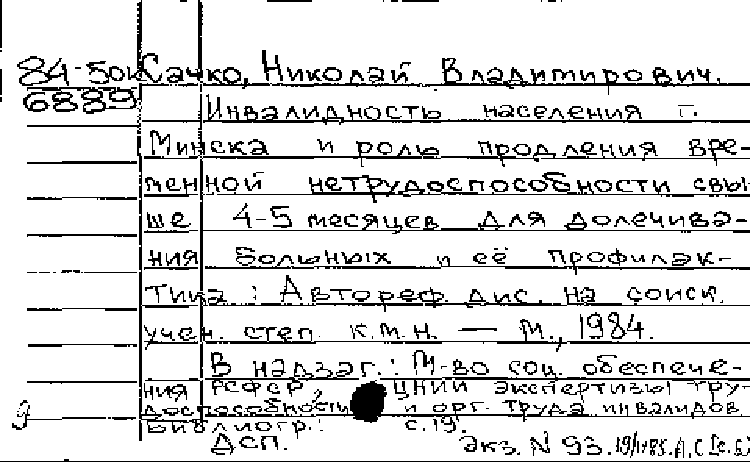 84-50к Сачко, Николай Владимирович.
6889
Инвалидность населения г.
Минска и роль продления вре-
менной нетрудоспособности свы
ше 4-5 месяцев для долечива-
ния больных и её профилак-
тика : Автореф. дис. на соиск.
учен. степ. к.м.н. — М., 1984.
В надзаг.: М-во соц. обеспече-
ния РСФСР, ЦНИИ экспертизы тру-
доспособности и орг. труда инвалидов.
Библиогр.: с.19.
д
ДСП. Экз. N 93.